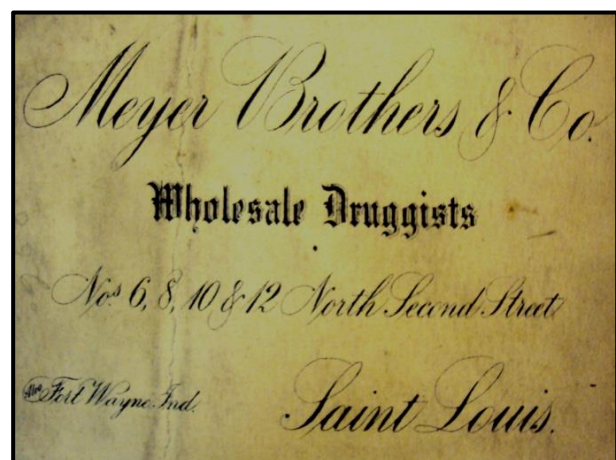 Meyer Brothers & Co.
Wholesale Druggists
Nos 6, 8, 10 & 12 North Second Street
Also Fort Wayne Ind.
Saint Louis.